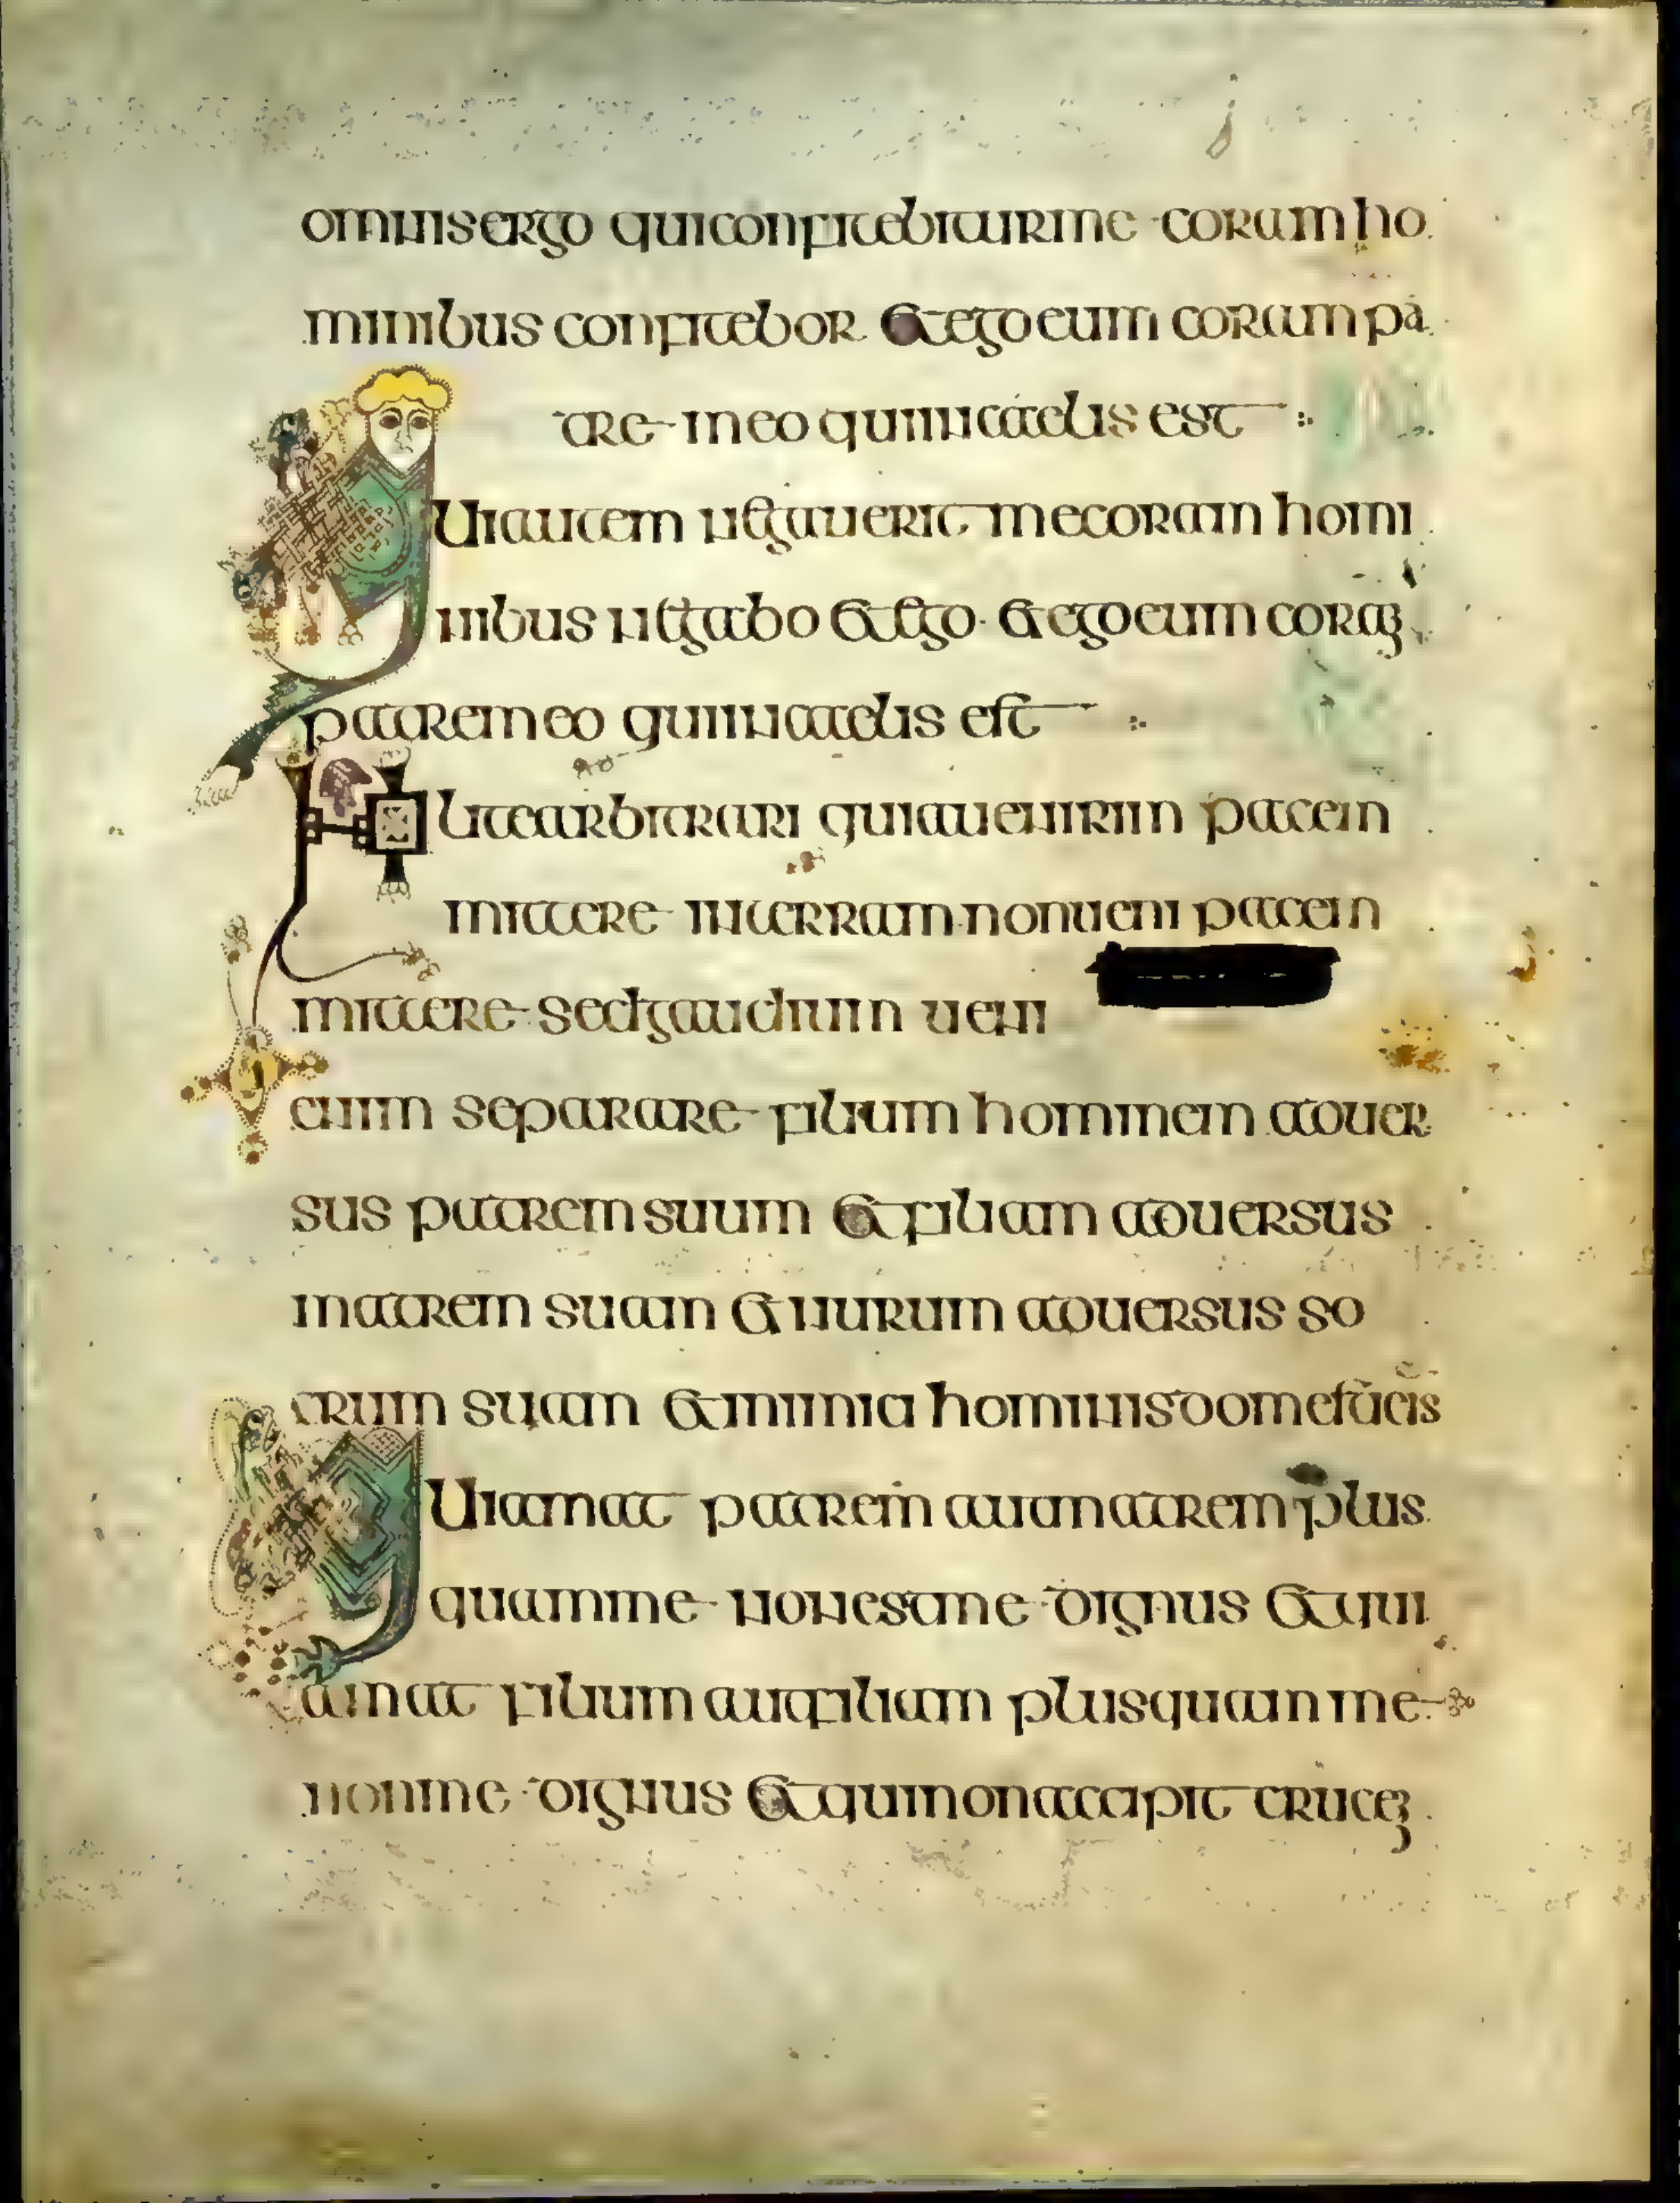 omnis ergo qui confitebitur me coram ho
minibus confitebor et ego eum coram pa
tre meo qui in caelis est
Qui autem negauerit me coram homi
nibus negabo et ego et ego eum coraꝫ
patre meo qui in caelis est
Nolite arbitrari quia uenirim pacem
mittere in terram non ueni pacem
mittere sed gaudium ueni
enim separare filium hominem aduer
sus patrem suum et filiam aduersus
matrem suam et nurum aduersus so
crum suam et inimici hominis
Qui amat patrem aut matrem plus
quam me non est me dignus et qui
amat filium aut filiam plus quam me
non me dignus et qui non accipit cruceꝫ